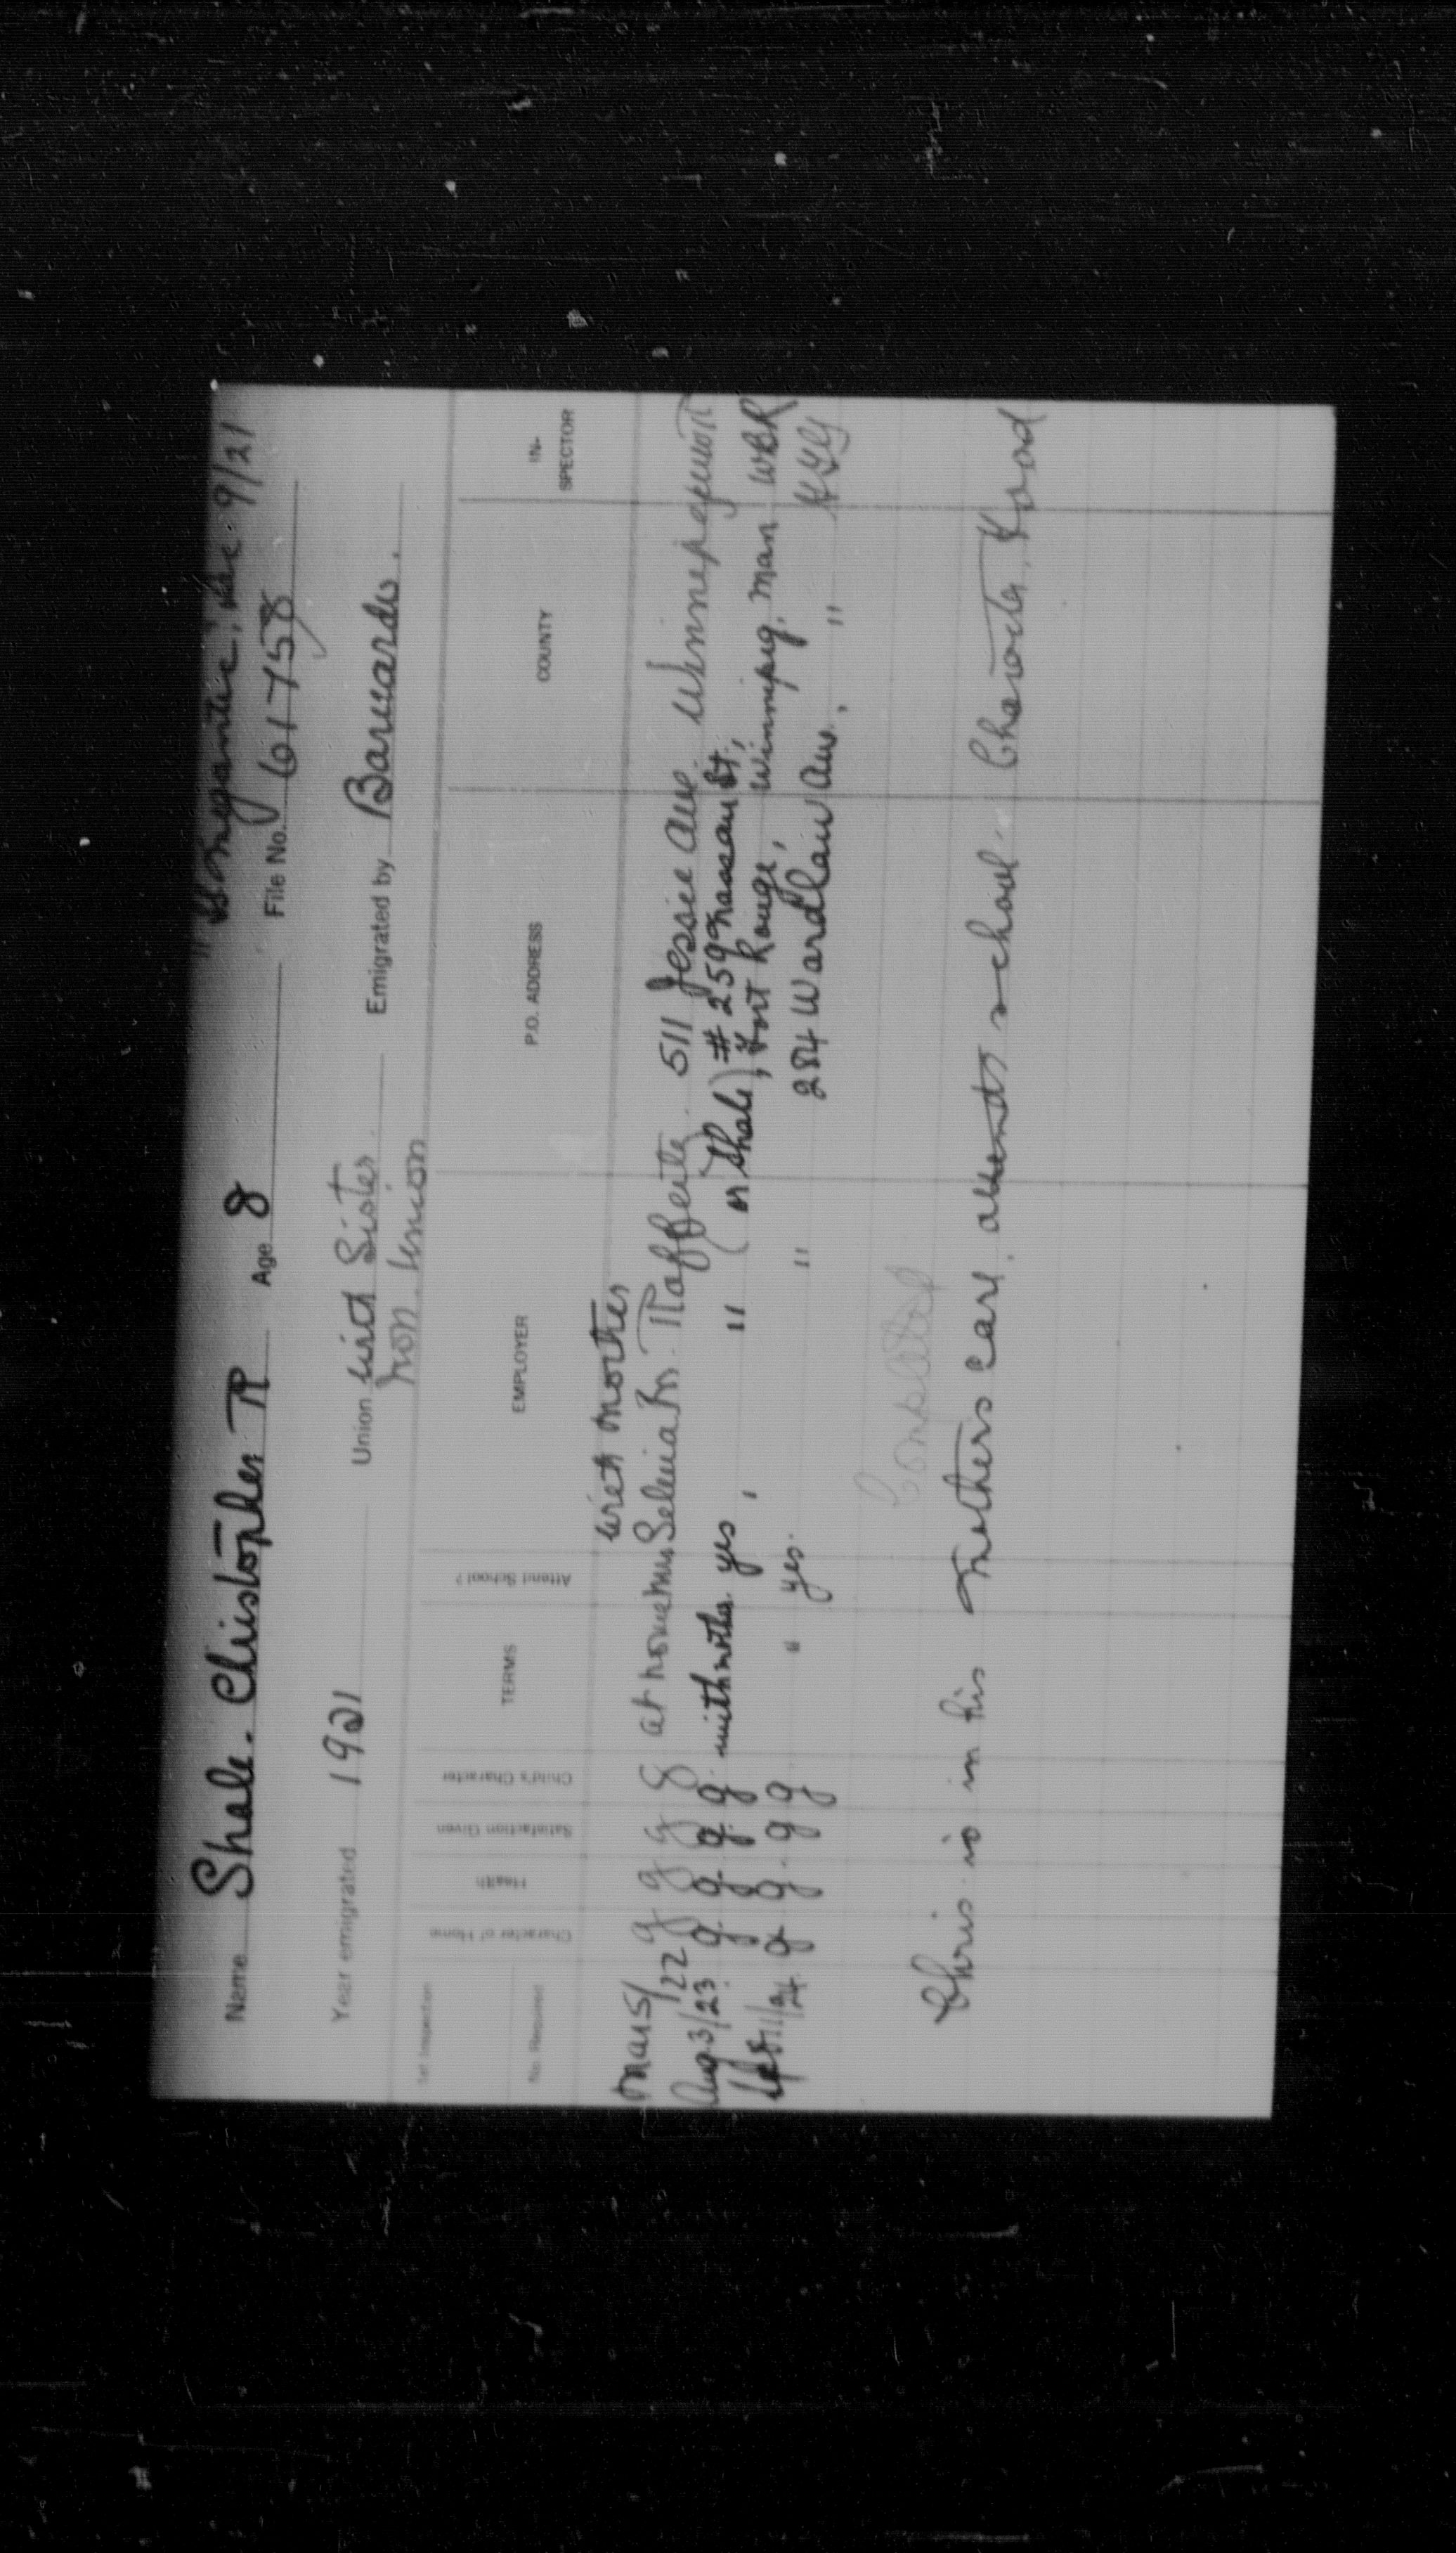 "Megantic" Dec 9/21
Name Shale. Christopher R Age 8 File No. 61758
Year emigrated 1921 Union with Sister. Emigrated by Barnardo.
Non. Union
1st Inspection
No. Required
Character of Home Health Satisfaction Given Child's Character TERMS Attend School? EMPLOYER P.O. ADDRESS COUNTY IN-SPECTOR
with mother
Mar 5/22 g g g g at home Mrs Selina M. 511 Jessie Ave. Winnipeg
Aug 3/23. g. g. g. g. with mother yes, " (or Shale) # 259 Nassau St.,
, Fort Rouge, Winnipeg, Man WBR
11/24. g g. g g " yes. " 284 Wardlaw Ave., "
Completed
Chris. is in his mothers care. attends school. Character Good